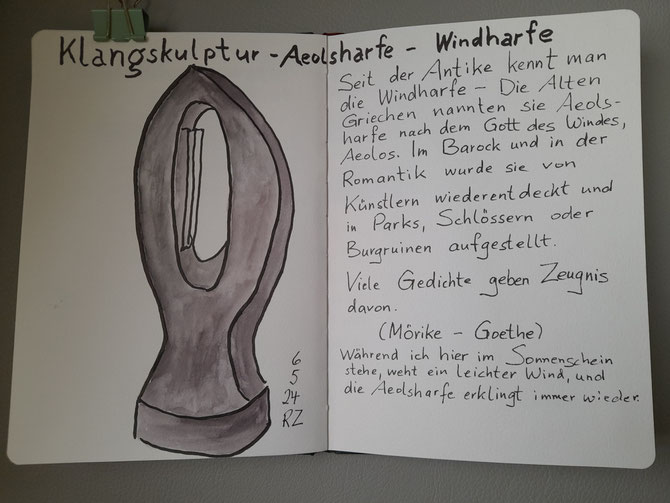 Klangskulptur - Aeolsharfe - Windharfe
Seit der Antike kennt man
die Windharfe - Die Alten
Griechen nannten sie Aeols-
harfe nach dem Gott des Windes,
Aeolos. Im Barock und in der
Romantik wurde sie von
Künstlern wiederentdeckt und
in Parks, Schlössern oder
Burgruinen aufgestellt.
Viele Gedichte geben Zeugnis
davon.
(Mörike - Goethe)
Während ich hier im Sonnenschein
stehe, weht ein leichter Wind, und
die Aeolsharfe erklingt immer wieder.
6
5
24
RZ